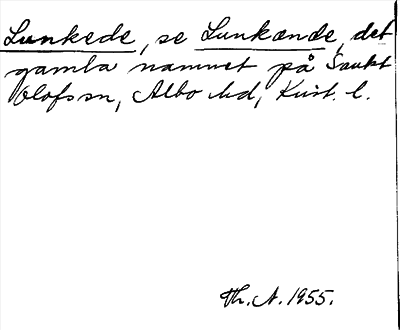 Lunkede, se Lunkænde, det
gamla namnet på Sankt
Olofs sn, Albo hd, Krist. l.
Th. A. 1955.